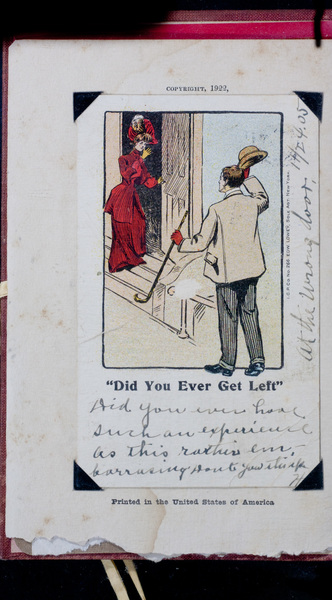 COPYRIGHT, 1922,
"Did You Ever Get Left"
Did you ever have
such an experience
as this rather em-
barrasing Dont you think
at the wrong door.
Printed in the United States of America